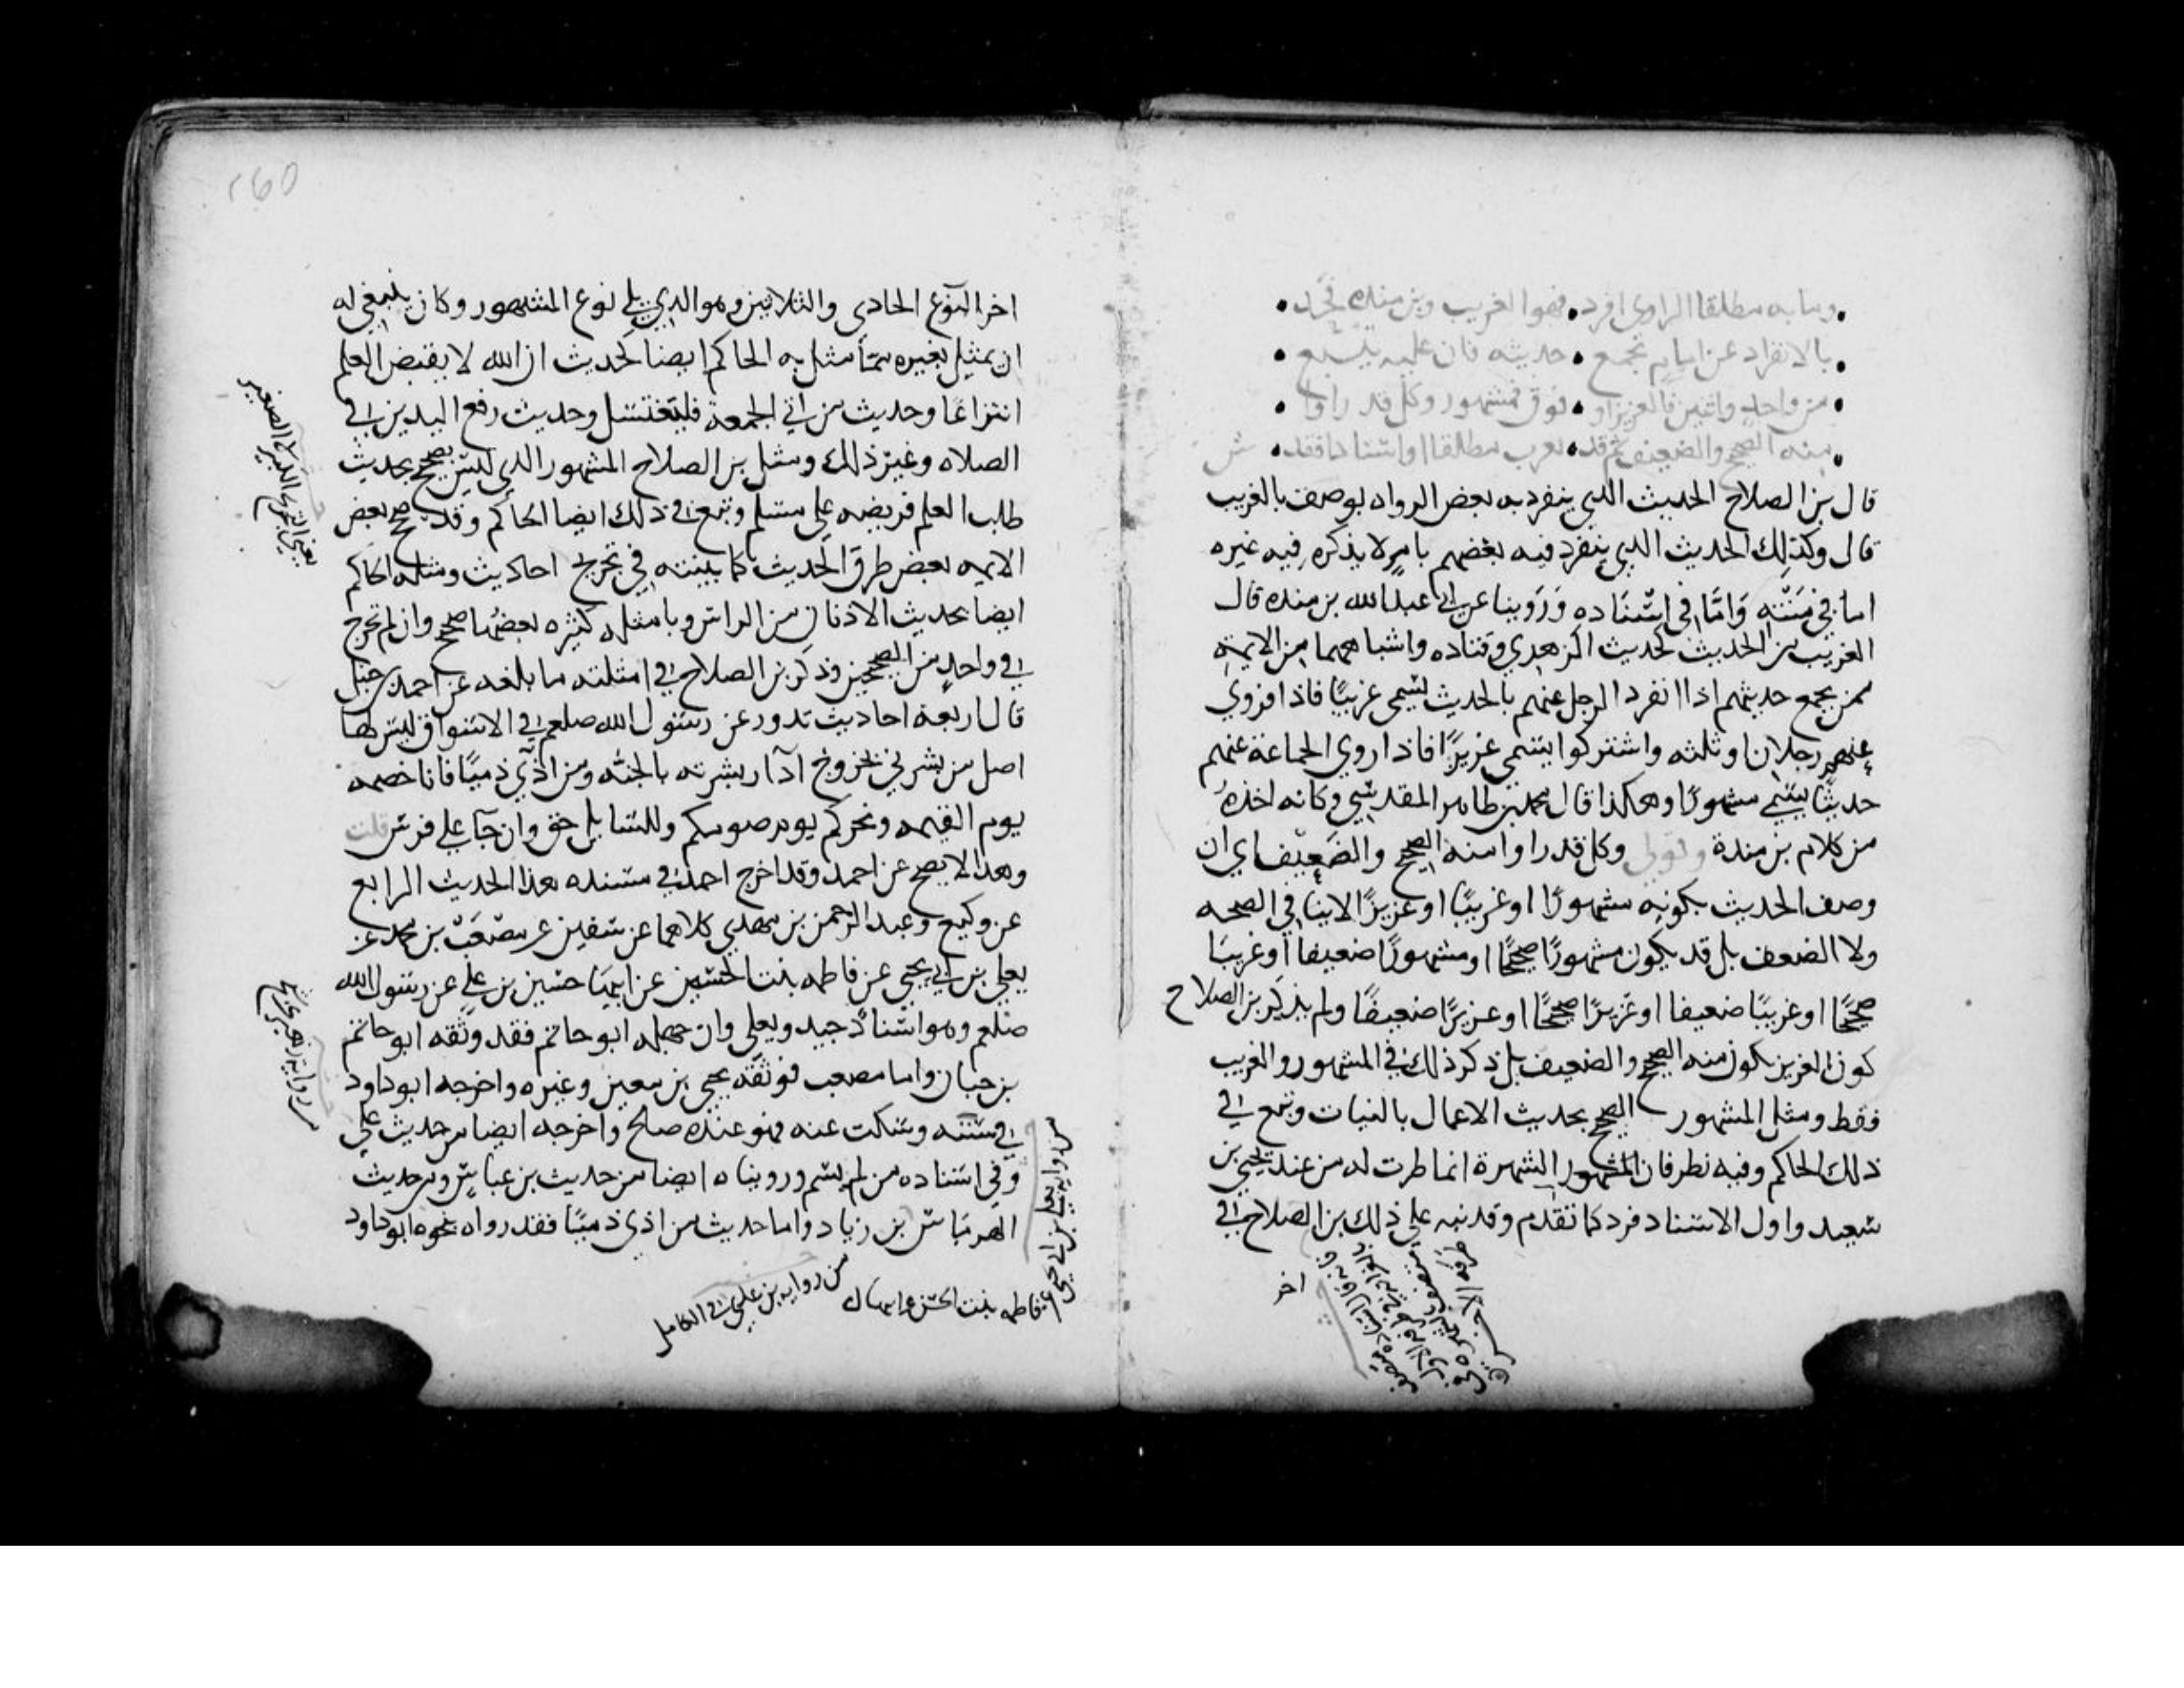 وما به مطلقا الراوي انفرد • فهو الغريب وبن منده فحد •
بالانفراد عن امام يجمع • حديثه فان عليه يتبع •
من واحد واثنين فالعزيز او • فوق فمشهور وكل قد راوا •
منه الصحيح والضعيف ثم قد • يغرب مطلقا او اسنادا فقد • ش
قال بن الصلاح الحديث الذي ينفرد به بعض الرواه يوصف بالغريب
قال وكذلك الحديث الذي ينفرد فيه بعضهم بامر لا يذكره فيه غيره
اما في متنه واما في اسناده وروينا عن ابي عبدالله بن منده قال
الغريب من الحديث كحديث الزهري وقتاده واشباههما من الايمة
ممن يجمع حديثهم اذا انفرد الرجل عنهم بالحديث يسمى غريبًا فاذا روي
عنهم رجلان او ثلثه واشتركوا يسمى عزيزًا فاذا روي الجماعة عنهم
حديثا يسمى مشهورًا وهكذا قال محمد بن طاهر المقدسي وكانه اخذه
من كلام بن مندة وقولي وكل قد راوا منه الصحيح والضعيف اي ان
وصف الحديث بكونه مشهورًا او غريبًا او عزيزًا لا ينافي الصحه
ولا الضعف بل قد يكون مشهورًا صحيحًا او مشهورًا ضعيفا او غريبا
صحيحًا او غريبًا ضعيفا او عزيزًا صحيحًا او عزيزًا ضعيفًا ولم يذكر بن الصلاح
كون العزيز يكون منه الصحيح والضعيف بل ذكر ذلك في المشهور والغريب
فقط ومثل المشهور الصحيح بحديث الاعمال بالنيات وتبع في
ذلك الحاكم وفيه نظر فان المشهور الشهرة انما طرت له من عند يحيى بن
سعيد واول الاسناد فرد كما تقدم وقد نبه على ذلك بن الصلاح في
اخر
اخر النوع الحادي والثلاثين وهو الذي يلي نوع المشهور وكان ينبغي له
ان يمثل بغيره مما مثل به الحاكم ايضا كحديث ان الله لا يقبض العلم
انتزاعًا وحديث من اتي الجمعة فليغتسل وحديث رفع اليدين في
الصلاه وغير ذلك ومثل بن الصلاح المشهور الذي ليس بصحيح بحديث
طلب العلم فريضه على مسلم وتبع في ذلك ايضا الحاكم وقد صحح بعض
الايمه بعض طرق الحديث كما بينته في تخريج احاديث ومثله الحاكم
ايضا بحديث الاذنان من الراس وبامثله كثيره بعضها صحيح وان لم تخرج
في واحد من الصحيحين وذكر بن الصلاح في امثلته ما بلغه عن احمد بن حنبل
قال اربعة احاديث تدور عن رسول الله صلعم في الاسواق ليس لها
اصل من بشرني بخروج آذار بشرته بالجنه ومن اذي ذميًا فانا خصمه
يوم القيمه ونحركم يوم صومكم وللسايل حق وان جآ على فرس قلت
وهذا لا يصح عن احمد وقد اخرج احمد في مسنده هذا الحديث الرابع
عن وكيع وعبد الرحمن بن مهدي كلاهما عن سفين عن مصعب بن محمد عن
يعلي بن ابي يحيى عن فاطمه بنت الحسين عن ابيها حسين بن علي عن رسول الله
صلعم وهو اسناد جيد ويعلي وان جهله ابو حاتم فقد وثقه ابو حاتم
بن حبان واما مصعب فوثقه يحيى بن معين وغيره واخرجه ابو داود
في سننه وسكت عنه فهو عنده صالح واخرجه ايضا من حديث علي
وفي اسناده من لم يسم ورويناه ايضا من حديث بن عباس ومن حديث
الهرماس بن زياد واما حديث من اذى ذميًا فقد رواه نحوه ابو داود
يعني التخريج الكبير لا الصغير
من رواية زهير بن
من رواية يعلى بن ابي يحيى
عن فاطمه بنت الحسين عن ابيها
من رواية بن عدي في الكامل